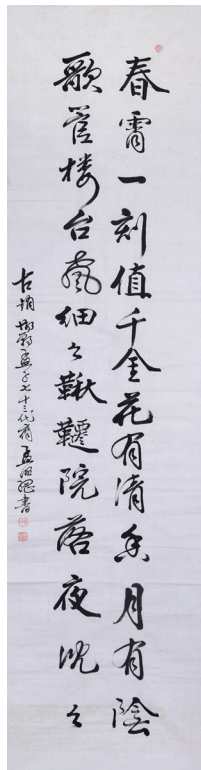 春宵一刻值千金花有清香月有陰
歌管楼台声细々鞦韆院落夜沈々
孟子七十三代裔孟
書